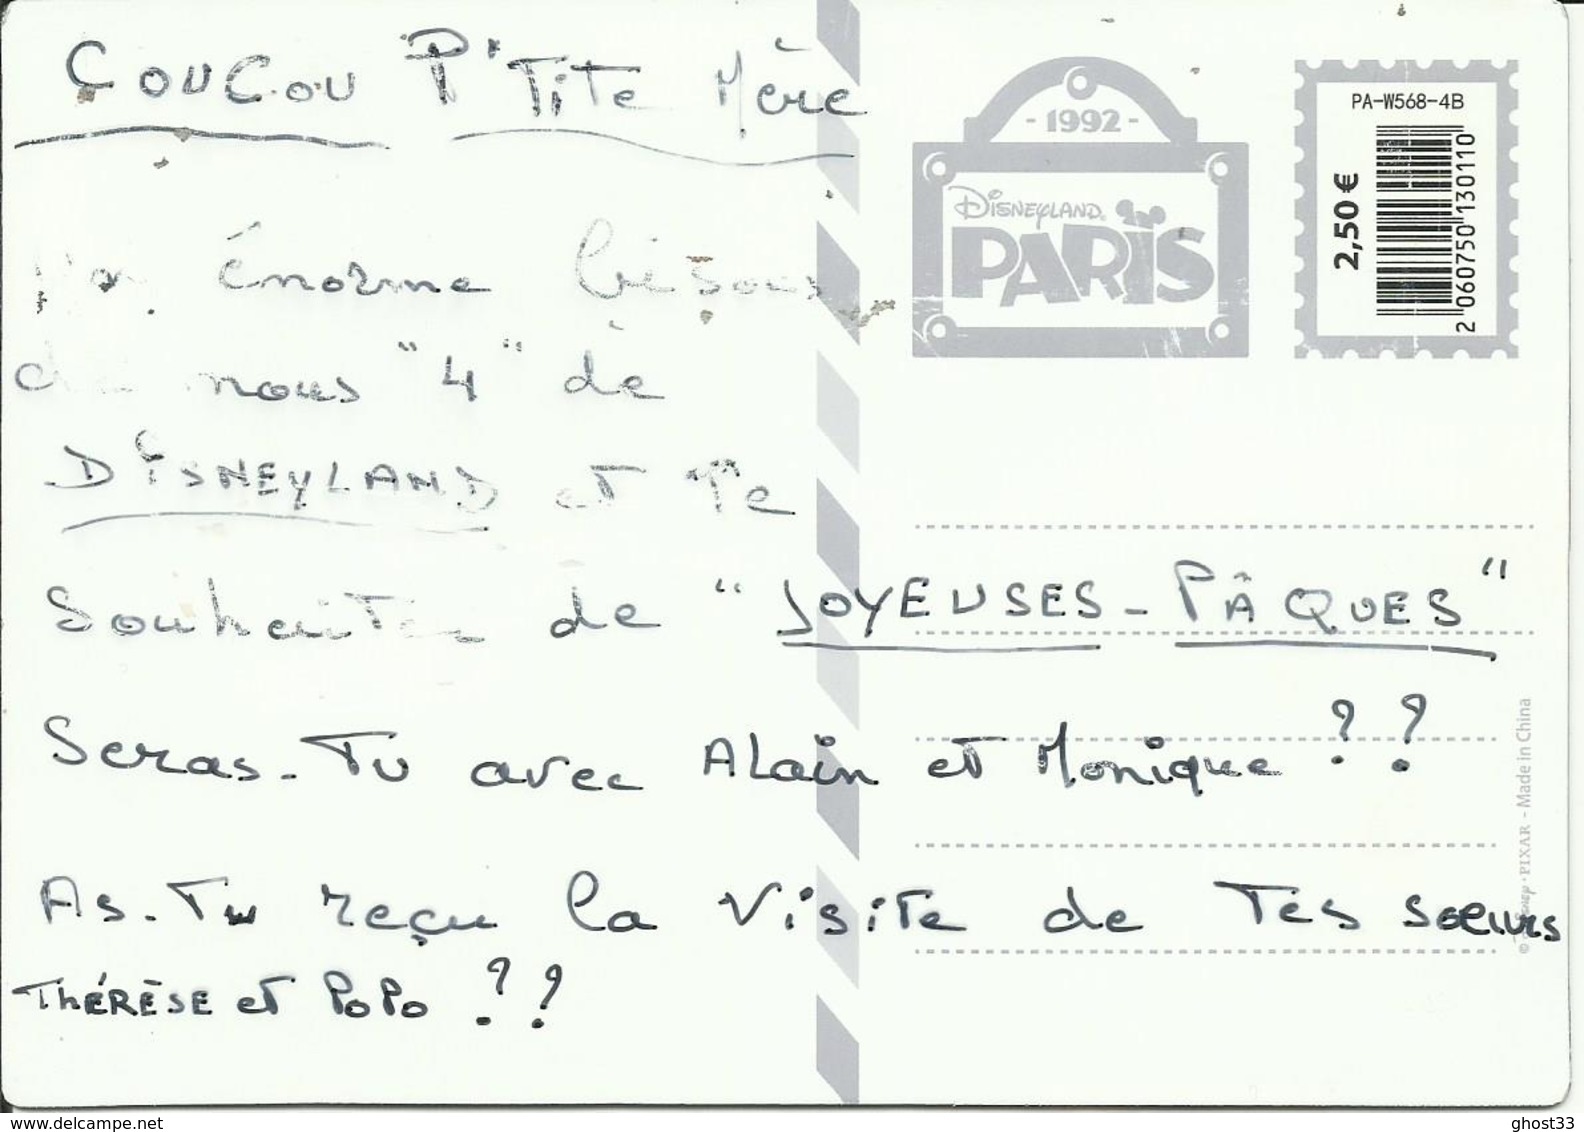 COUCOU P'TiTe Mère
énorme bisous
de nous "4" de
DiSNEYLAND et Te
Souhaiter de "JOYEUSES - PÂQUES"
Seras-Tu avec Alain et Monique ??
As-Tu reçu la visiTe de Tes sœurs
THÉRÈSE et PoPo ??
- 1992 -
DISNEYLAND
PARIS
PA-W568-4B
2,50 €
2 060750 130110
© Disney · PIXAR - Made in China
delcampe.net
ghost33